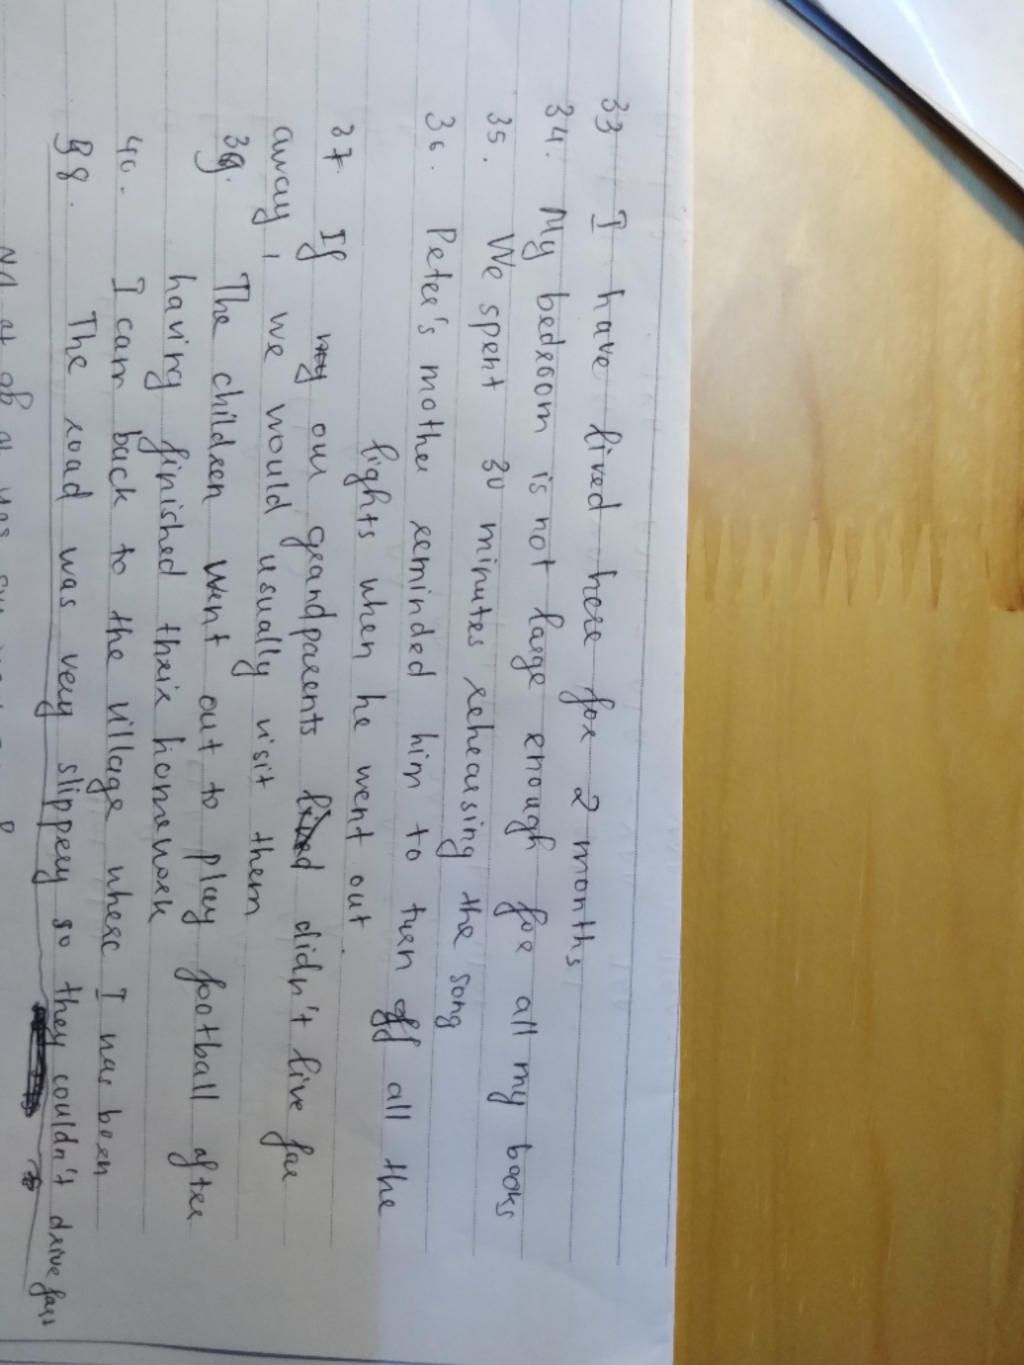 33 I have lived here for 2 months
34. My bedroom is not large enough for all my books
35. We spent 30 minutes rehearsing the song
36. Peter's mother reminded him to turn off all the
lights when he went out.
37. If our grandparents didn't live far
away, we would usually visit them
39. The children went out to play football after
having finished their homework
40. I cam back to the village where I was been
38. The road was very slippery so they couldn't drive fast